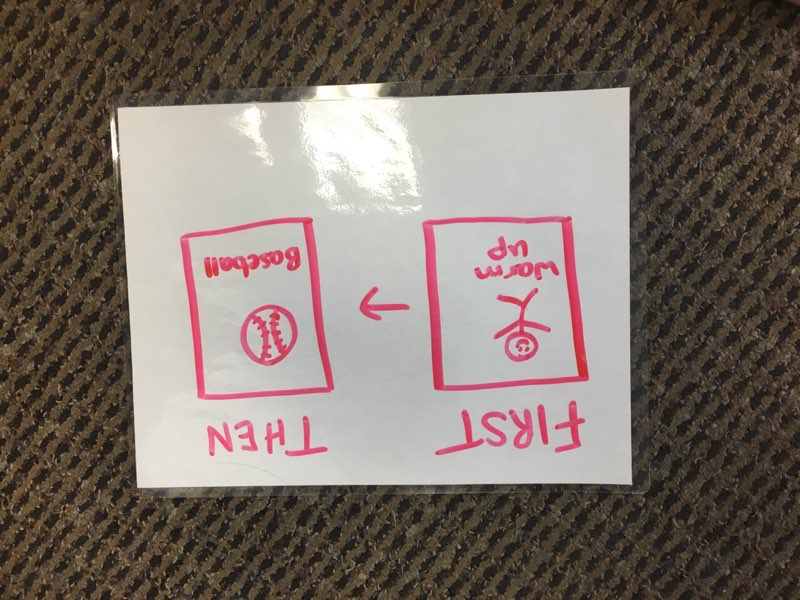 FIRST
warm
up
THEN
Baseball